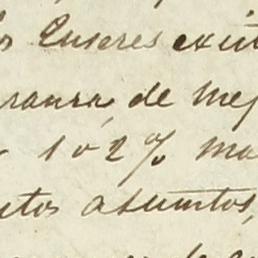 s Enseres exist
ranza, de mej
1 ó 2 % ma
ntos asuntos,